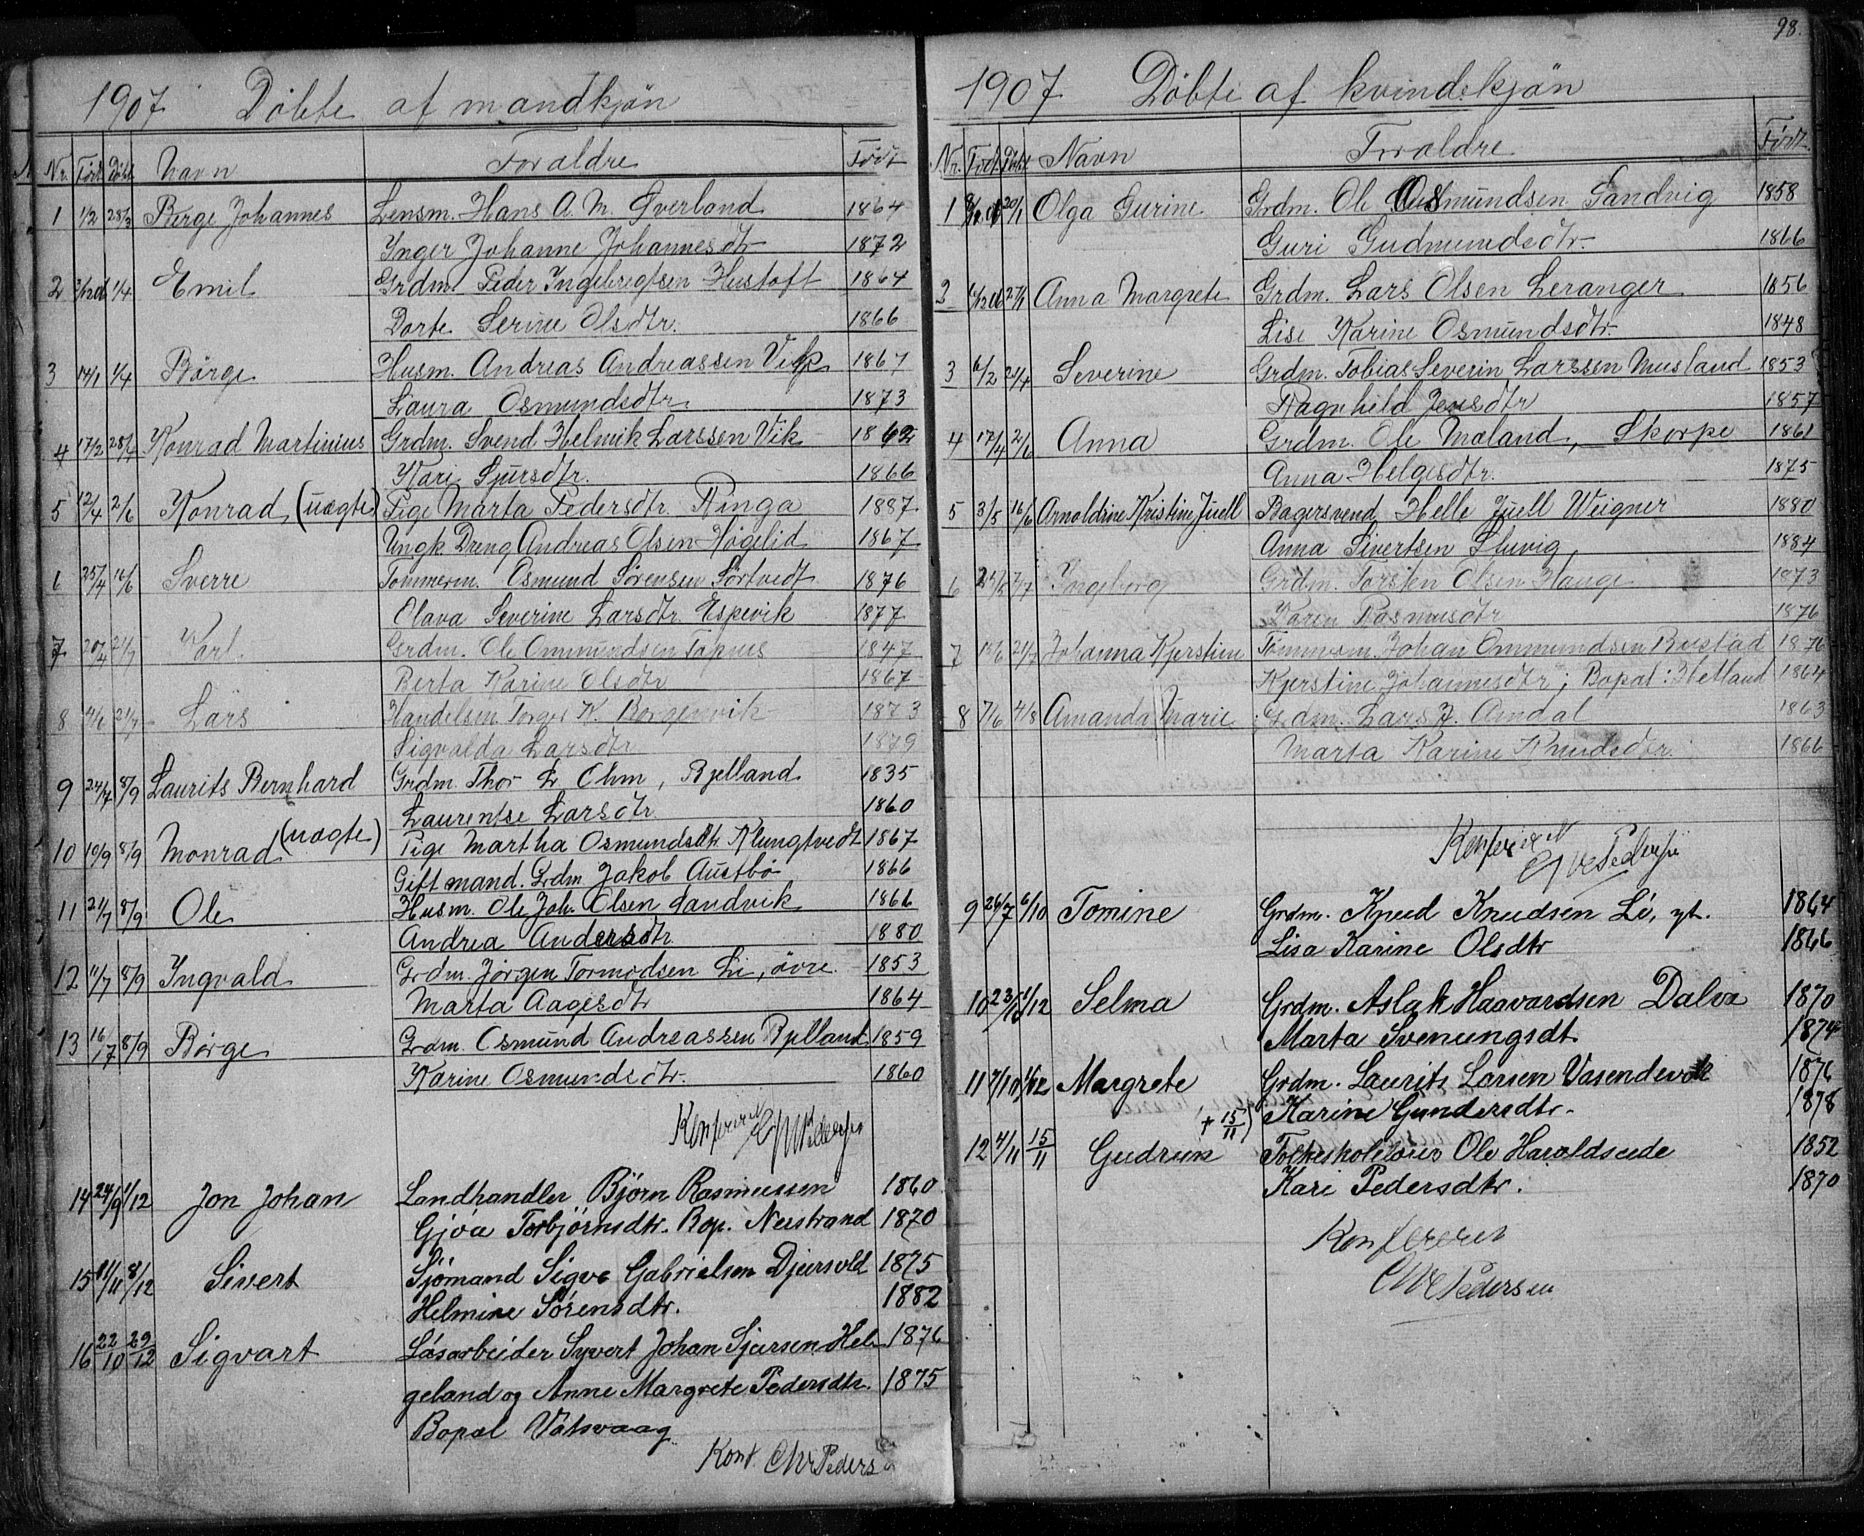 1907 Döbte af mandkjön
Nr. Födt Döbt Navn Foraldre Födt
1 1/2 28/3 Börge Johannes Lensm. Hans A. M. Överland 1864
Inger Johanne Johannesdtr 1872
2 1/4 Emil Grdm. Peder Ingebregtsen Hustoft 1864
Dorte Serine Olsdtr. 1866
3 14/1 1/4 Börge Husm. Andreas Andreassen Vik 1867
Laura Osmundsdtr. 1873
4 17/2 28/4 Konrad Martinius Grdm. Svend Helmik Larssen Vik 1862
Kari Sjursdtr. 1866
5 12/4 2/6 Konrad, (uægte) Pige Marta Pedersdtr. Ringa 1887
Ungk. Dreng Andreas Olsen Högelid 1867
6 25/4 16/6 Sverre Tömmerm. Osmund Sörensen Sörtvedt 1876
Olava Severine Larsdtr Espevik 1877
7 20/4 21/7 Karl Grdm. Ole Ommundsen 1847
Berta Karine Olsdtr 1867
8 4/6 21/7 Lars Handelsm. Torger K. Borgenvik 1873
Sigvalda Larsdtr 1879
9 24/7 8/9 Laurits Bernhard Grdm. Thor L Ohm, Bjelland 1835
Laurentse Larsdtr 1860
10 8/9 Monrad (uægte) Pige Martha Osmundsdtr Klungtvedt 1867
Gift mand. Grdm Jakob Austbö 1866
11 21/7 8/9 Ole Husm. Ole Joh. Olsen Sandvik 1866
Andrea Andersdtr 1880
12 11/7 8/9 Ingvald Grdm. Jörgen Tormodsen Li, övre. 1853
Marta Aagesdtr 1864
13 16/7 8/9 Börge Grdm. Osmund Andreassen Bjelland 1859
Karine Osmundsdtr. 1860
Konfereret Chr Pedersen
14 24/9 1/12 Jon Johan Landhandler Björn Rasmussen 1860
Gjöa Torbjörnsdtr. Bop. Nerstrand 1870
15 8/12 Sivert Sjömand Sigve Gabrielsen Djursvold 1875
Helmine Sörensdtr. 1882
16 22/10 22/12 Sigvart Lösarbeider Syvert Johan Sjursen Hel- 1876
geland og Anne Margrete Pedersdtr. 1875
Bopæl Vatsvaag
Konf. Chr Peders
98.
1907 Döbte af kvindekjön
Nr. Födt Döbt Navn Foraldre Födt
1 20/1 Olga Gurine Grdm. Ole Osmundsen Sandvig 1858
Guri Gudmundsdtr. 1866
2 27/1 Anna Margrete Grdm. Lars Olsen Leranger 1856
Lise Karine Osmundsdtr 1848
3 6/2 21/4 Severine Grdm. Tobias Severin Larssen Musland 1853
Ragnhild Jensdtr 1857
4 17/4 2/6 Anna Grdm. Ole Mæland, Skorpe 1861
Anna Helgesdtr. 1875
5 3/5 16/6 Arnoldine Kristine Juell Bagersvend Helle Juell Weigner 1880
Anna Sivertsen Sluvig 1884
6 7/7 Ingeborg Grdm. Torsten Olsen Hauge 1873
Karen Rasmusdtr 1876
7 21/7 Johanna Kjerstine Tömmerm. Johan Ommundsen Buestad 1876
Kjerstine Johannesdtr; Bopæl: Helland 1864
8 7/6 4/8 Amanda Marie Grdm. Lars J. Amdal 1863
Marta Karine Knudsdtr. 1866
Konfereret
Chr Pedersen
9 26/7 6/10 Tomine Grdm. Knud Knudsen Li, yt. 1864
Lisa Karine Olsdtr 1866
10 23/10 1/12 Selma Grdm. Aslak Haavardsen Dalva 1870
Marta Svenungsdt. 1874
11 7/10 1/12 Margrete Grdm. Laurits Larsen Vasendevik 1876
Karine Gundersdtr. 1878
12 4/11 15/11 Gudrun (+ 15/11) Folkeskolelærer Ole Haroldseide 1852
Kari Pedersdtr. 1870
Konfereret
Chr Pedersen